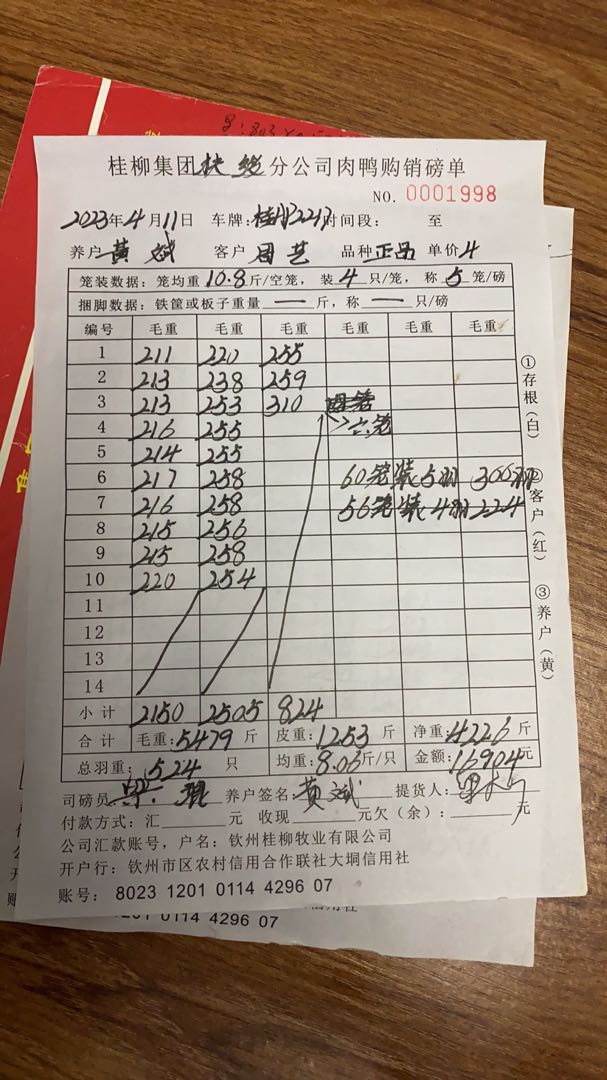 桂柳集团 分公司肉鸭购销磅单
NO. 0001998
2023年4月11日 车牌: 时间段: 至
养户 黄斌 客户 周艺 品种 正品 单价 4
笼装数据: 笼均重 10.8 斤/空笼, 装 4 只/笼, 称 5 笼/磅
捆脚数据: 铁筐或板子重量 — 斤, 称 — 只/磅
编号 毛重 毛重 毛重 毛重 毛重 毛重
1 211 220 255
2 213 238 259
3 213 253 310
4 216 255 六笼
5 214 255
6 217 258 60笼装5羽 300羽
7 216 258 56笼装4羽 224
8 215 256
9 215 258
10 220 254
11
12
13
14
小计 2150 2505 824
合计 毛重: 5479 斤 皮重: 1253 斤 净重: 4226 斤
总羽重: 524 只 均重: 8.06 斤/只 金额: 16904 元
司磅员 养户签名: 黄斌 提货人:
付款方式: 汇 元 收现 元欠(余): 元
公司汇款账号, 户名: 钦州桂柳牧业有限公司
开户行: 钦州市区农村信用合作联社大垌信用社
账号: 8023 1201 0114 4296 07
①存根(白)
②客户(红)
③养户(黄)
1201 0114 4296 07